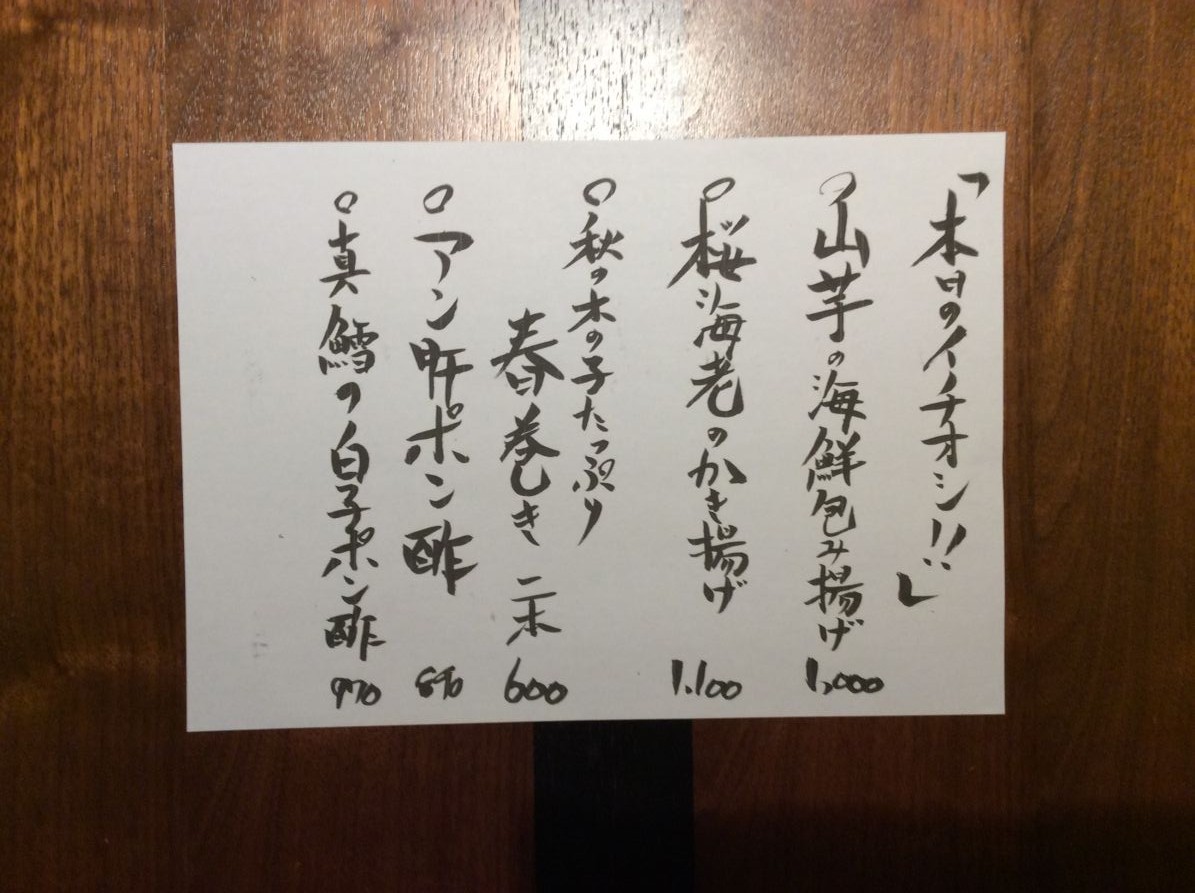 「本日のイチオシ!!」
○山芋の海鮮包み揚げ 1,000
○桜海老のかき揚げ 1.100
○秋の木の子たっぷり
春巻き 二本 600
○アン肝ポン酢
○真鱈の白子ポン酢 970